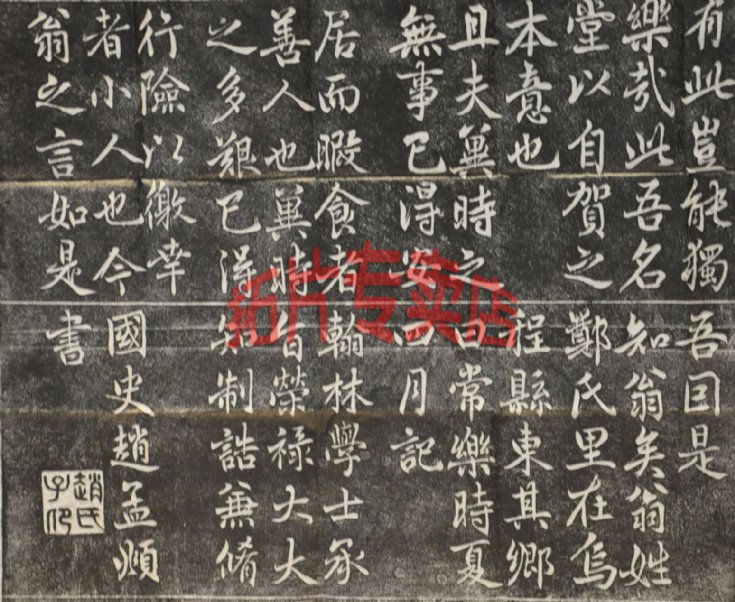 有此豈能獨
樂哉此吾名
堂以自賀之
本意也
且夫冀時之
無事已得安
居而暇食者
善人也冀時
之多艱已得
行險以徼幸
者小人也今
翁之言如是
吾囙是
知翁矣翁姓
鄭氏里在烏
程縣東其鄉
曰常樂時夏
四月記
翰林學士承
旨榮祿大夫
知制誥兼脩
國史趙孟頫
書
趙氏子卬
拓片专卖店